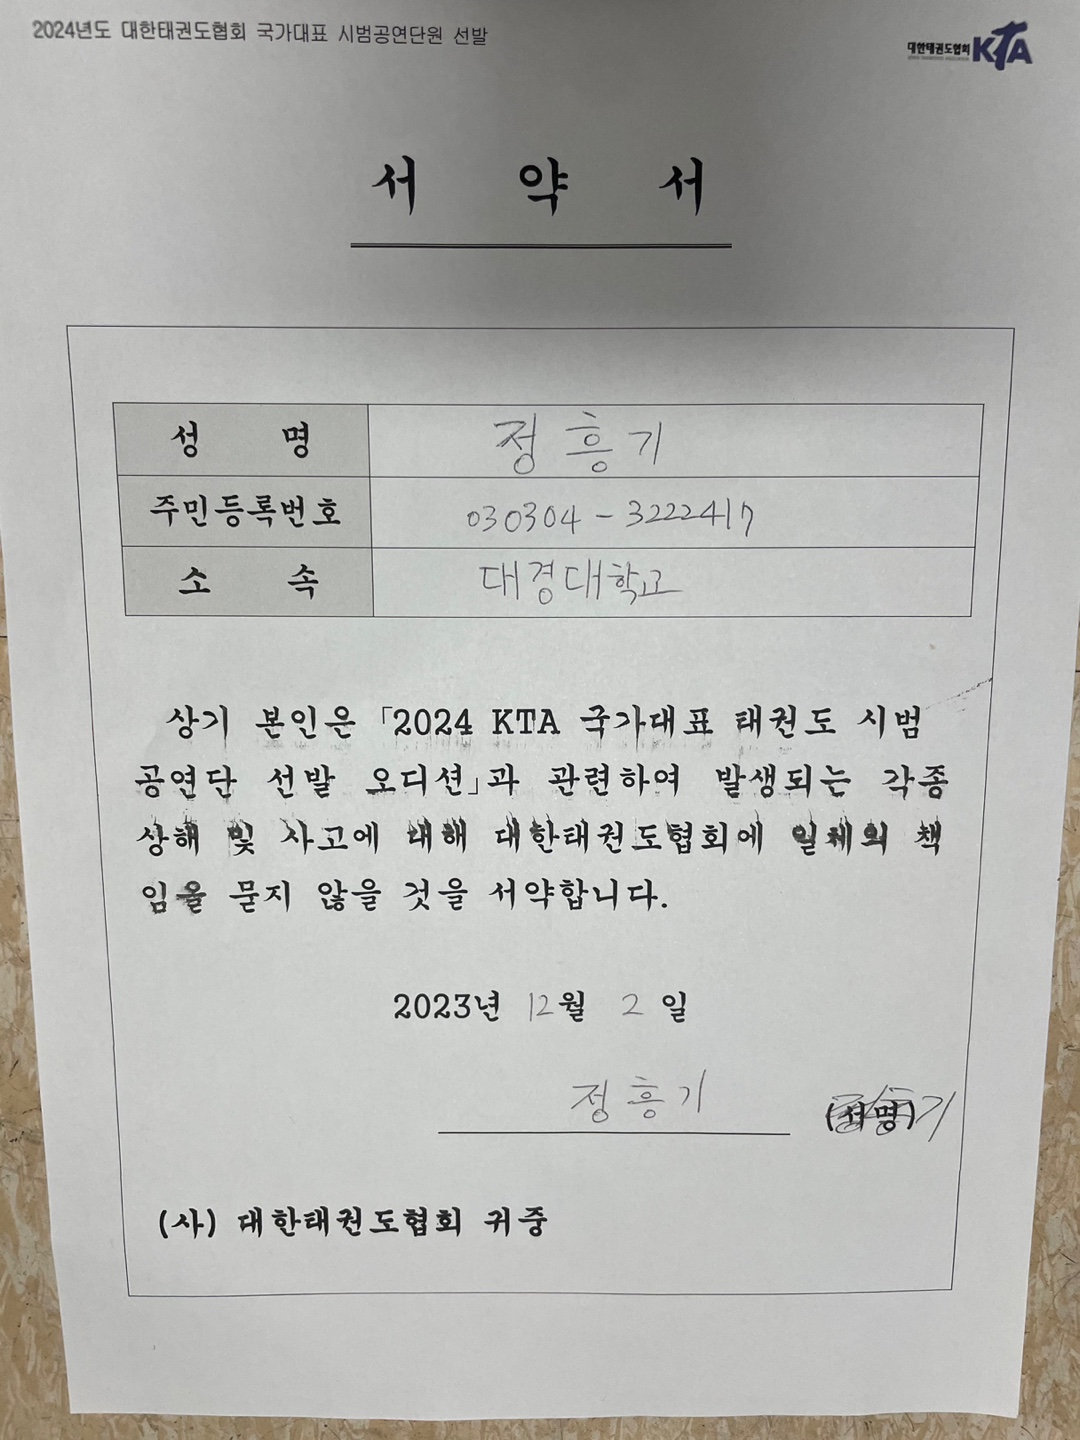 2024년도 대한태권도협회 국가대표 시범공연단원 선발
대한태권도협회 KTA
서 약 서
성 명 정흥기
주민등록번호 030304-3222417
소 속 대경대학교
상기 본인은 「2024 KTA 국가대표 태권도 시범
공연단 선발 오디션」과 관련하여 발생되는 각종
상해 및 사고에 대해 대한태권도협회에 일체의 책
임을 묻지 않을 것을 서약합니다.
2023년 12월 2일
정흥기 (서명)
(사) 대한태권도협회 귀중